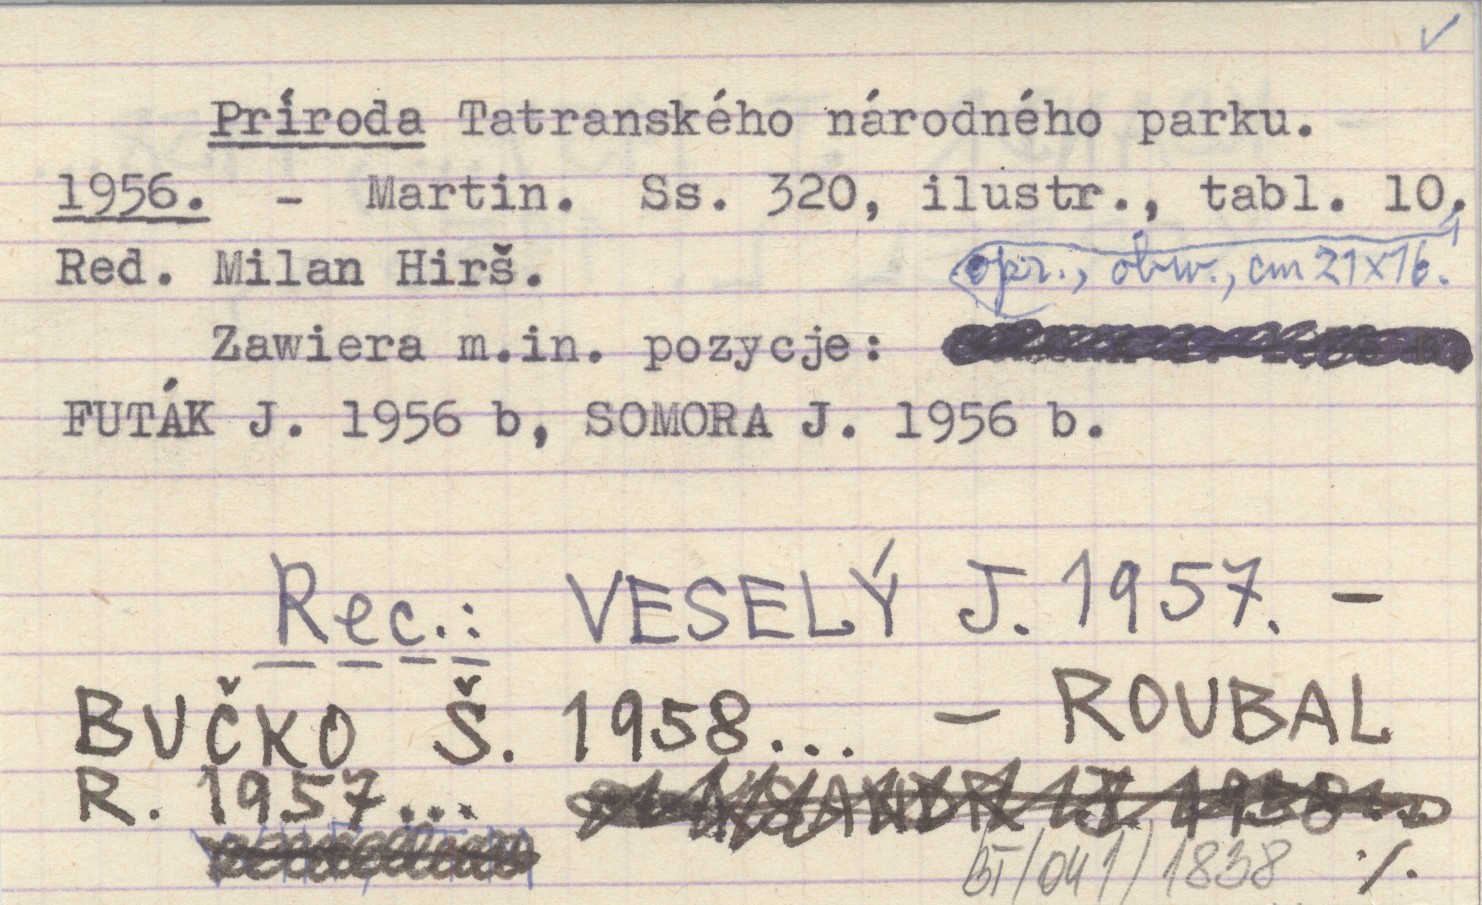 Príroda Tatranského národného parku.
1956. - Martin. Ss. 320, ilustr., tabl. 10.
Red. Milan Hirš. opr., obw., cm 21x16.
Zawiera m.in. pozycje:
FUTÁK J. 1956 b, SOMORA J. 1956 b.
Rec.: VESELÝ J. 1957. –
BUČKO Š. 1958... – ROUBAL
R. 1957...
BT/041/1838 ./.